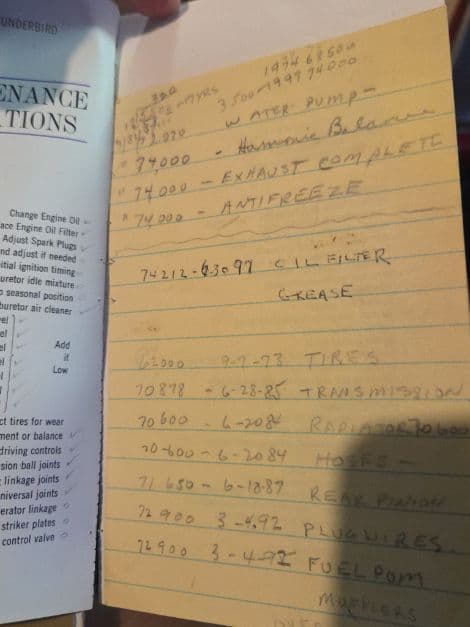 UNDERBIRD
ENANCE
TIONS
Change Engine Oil
ace Engine Oil Filter
Adjust Spark Plugs
nd adjust if needed
itial ignition timing
uretor idle mixture
o seasonal position
buretor air cleaner
el
el
el
el
Add
if
Low
ct tires for wear
ment or balance
driving controls
sion ball joints
linkage joints
niversal joints
erator linkage
striker plates
control valve
1974 68500
3500 - 1997 74000
WATER PUMP -
" 74,000 - Harmonic Balance
" 74000 - EXHAUST COMPLETE
" 74000 - ANTIFREEZE
74212 - 6-30-97 OIL FILTER
GREASE
9-7-73 TIRES
70878 - 6-28-85 TRANSMISSION
70600 - 6-2084 RADIATOR 70600
70-600 - 6-2084 HOSES -
71650 - 6-18-87 REAR
72900 3-4-92 PLUG WIRES
72900 3-4-92 FUEL POM
MUFFLERS